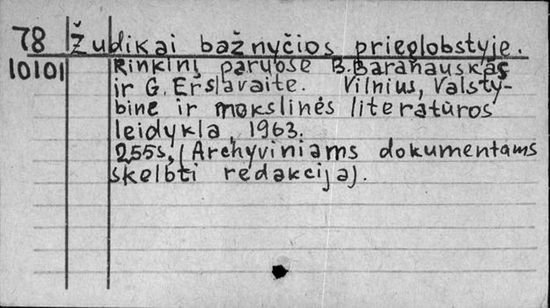 78 Žudikai bažnyčios prieglobstyje.
10101 Rinkinį paruošė B. Baranauskas
ir G. Erslavaite. Vilnius, Valsty-
binė ir mokslinės literatūros
leidykla, 1963.
255s, (Archyviniams dokumentams
skelbti redakcija).